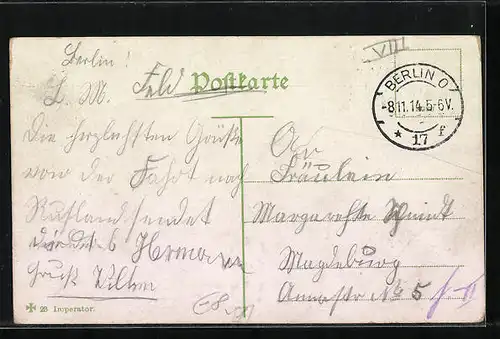 Berlin!
L. M.
Feld Postkarte
VIII
BERLIN O
-8.11.14. 5-6 V.
* 17 f
Die herzlichsten Grüße
von der Fahrt nach
Rußland sendet
Hermann
Gruß
An
Fräulein
Margarethe
Magdeburg
Annastr No 5
28 Imperator.